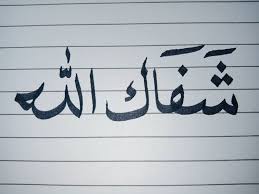 شَفَاك اللّٰه